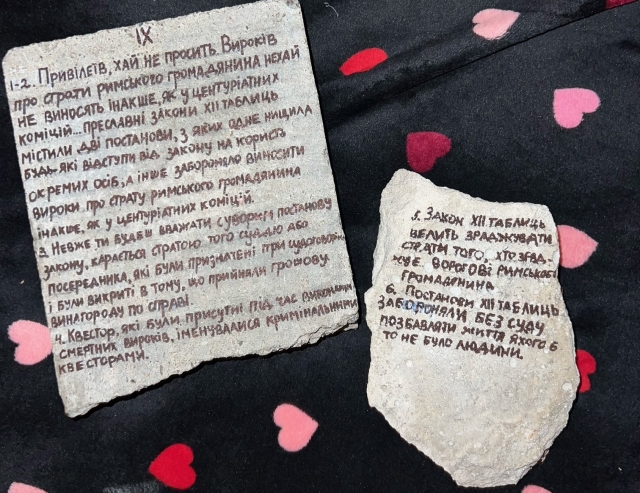 IX
1-2. Привілеїв, хай не просить. Вироків
про страти римського громадянина нехай
не виносять інакше, як у центуріатних
коміцій... Преславні закони XII таблиць
містили дві постанови, з яких одне нищила
будь-які відступи від закону на користь
окремих осіб, а інше забороняло виносити
вироки про страту римського громадянина
інакше, як у центуріатних коміцій.
3. Невже ти будеш вважати суворим постанову
закону, карається стратою того суддю або
посередника, які були призначені при судоговорін
і були викриті в тому, що прийняли грошову
винагороду по справі.
4. Квестор, які були присутні під час виконання
смертних вироків, іменувалися кримінальними
квесторами.
5. Закон XII таблиць
велить зраджувати
страти того, хто зрад-
жує ворогові римського
громадянина
6. Постанови XII таблиць
забороняли без суду
позбавляти життя якого б
то не було людини.